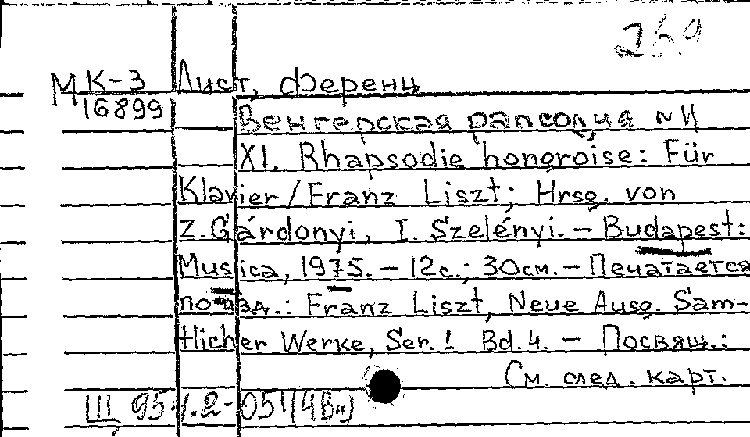 МК-3 Лист, Ференц
16899
Венгерская рапсодия № 11
XI. Rhapsodie hongroise: Für
Klavier / Franz Liszt; Hrsg. von
Z. Gárdonyi, I. Szelényi. – Budapest:
Musica, 1975. – 12с.; 30см. – Печатается
по изд.: Franz Liszt, Neue Ausg. Säm-
tlicher Werke, Ser. 1 Bd. 4. – Посвящ.:
См. след. карт.
Щ 95